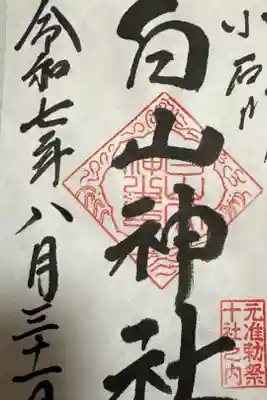 小石川
白山神社
元准勅祭
十社之内
令和七年八月三十一日